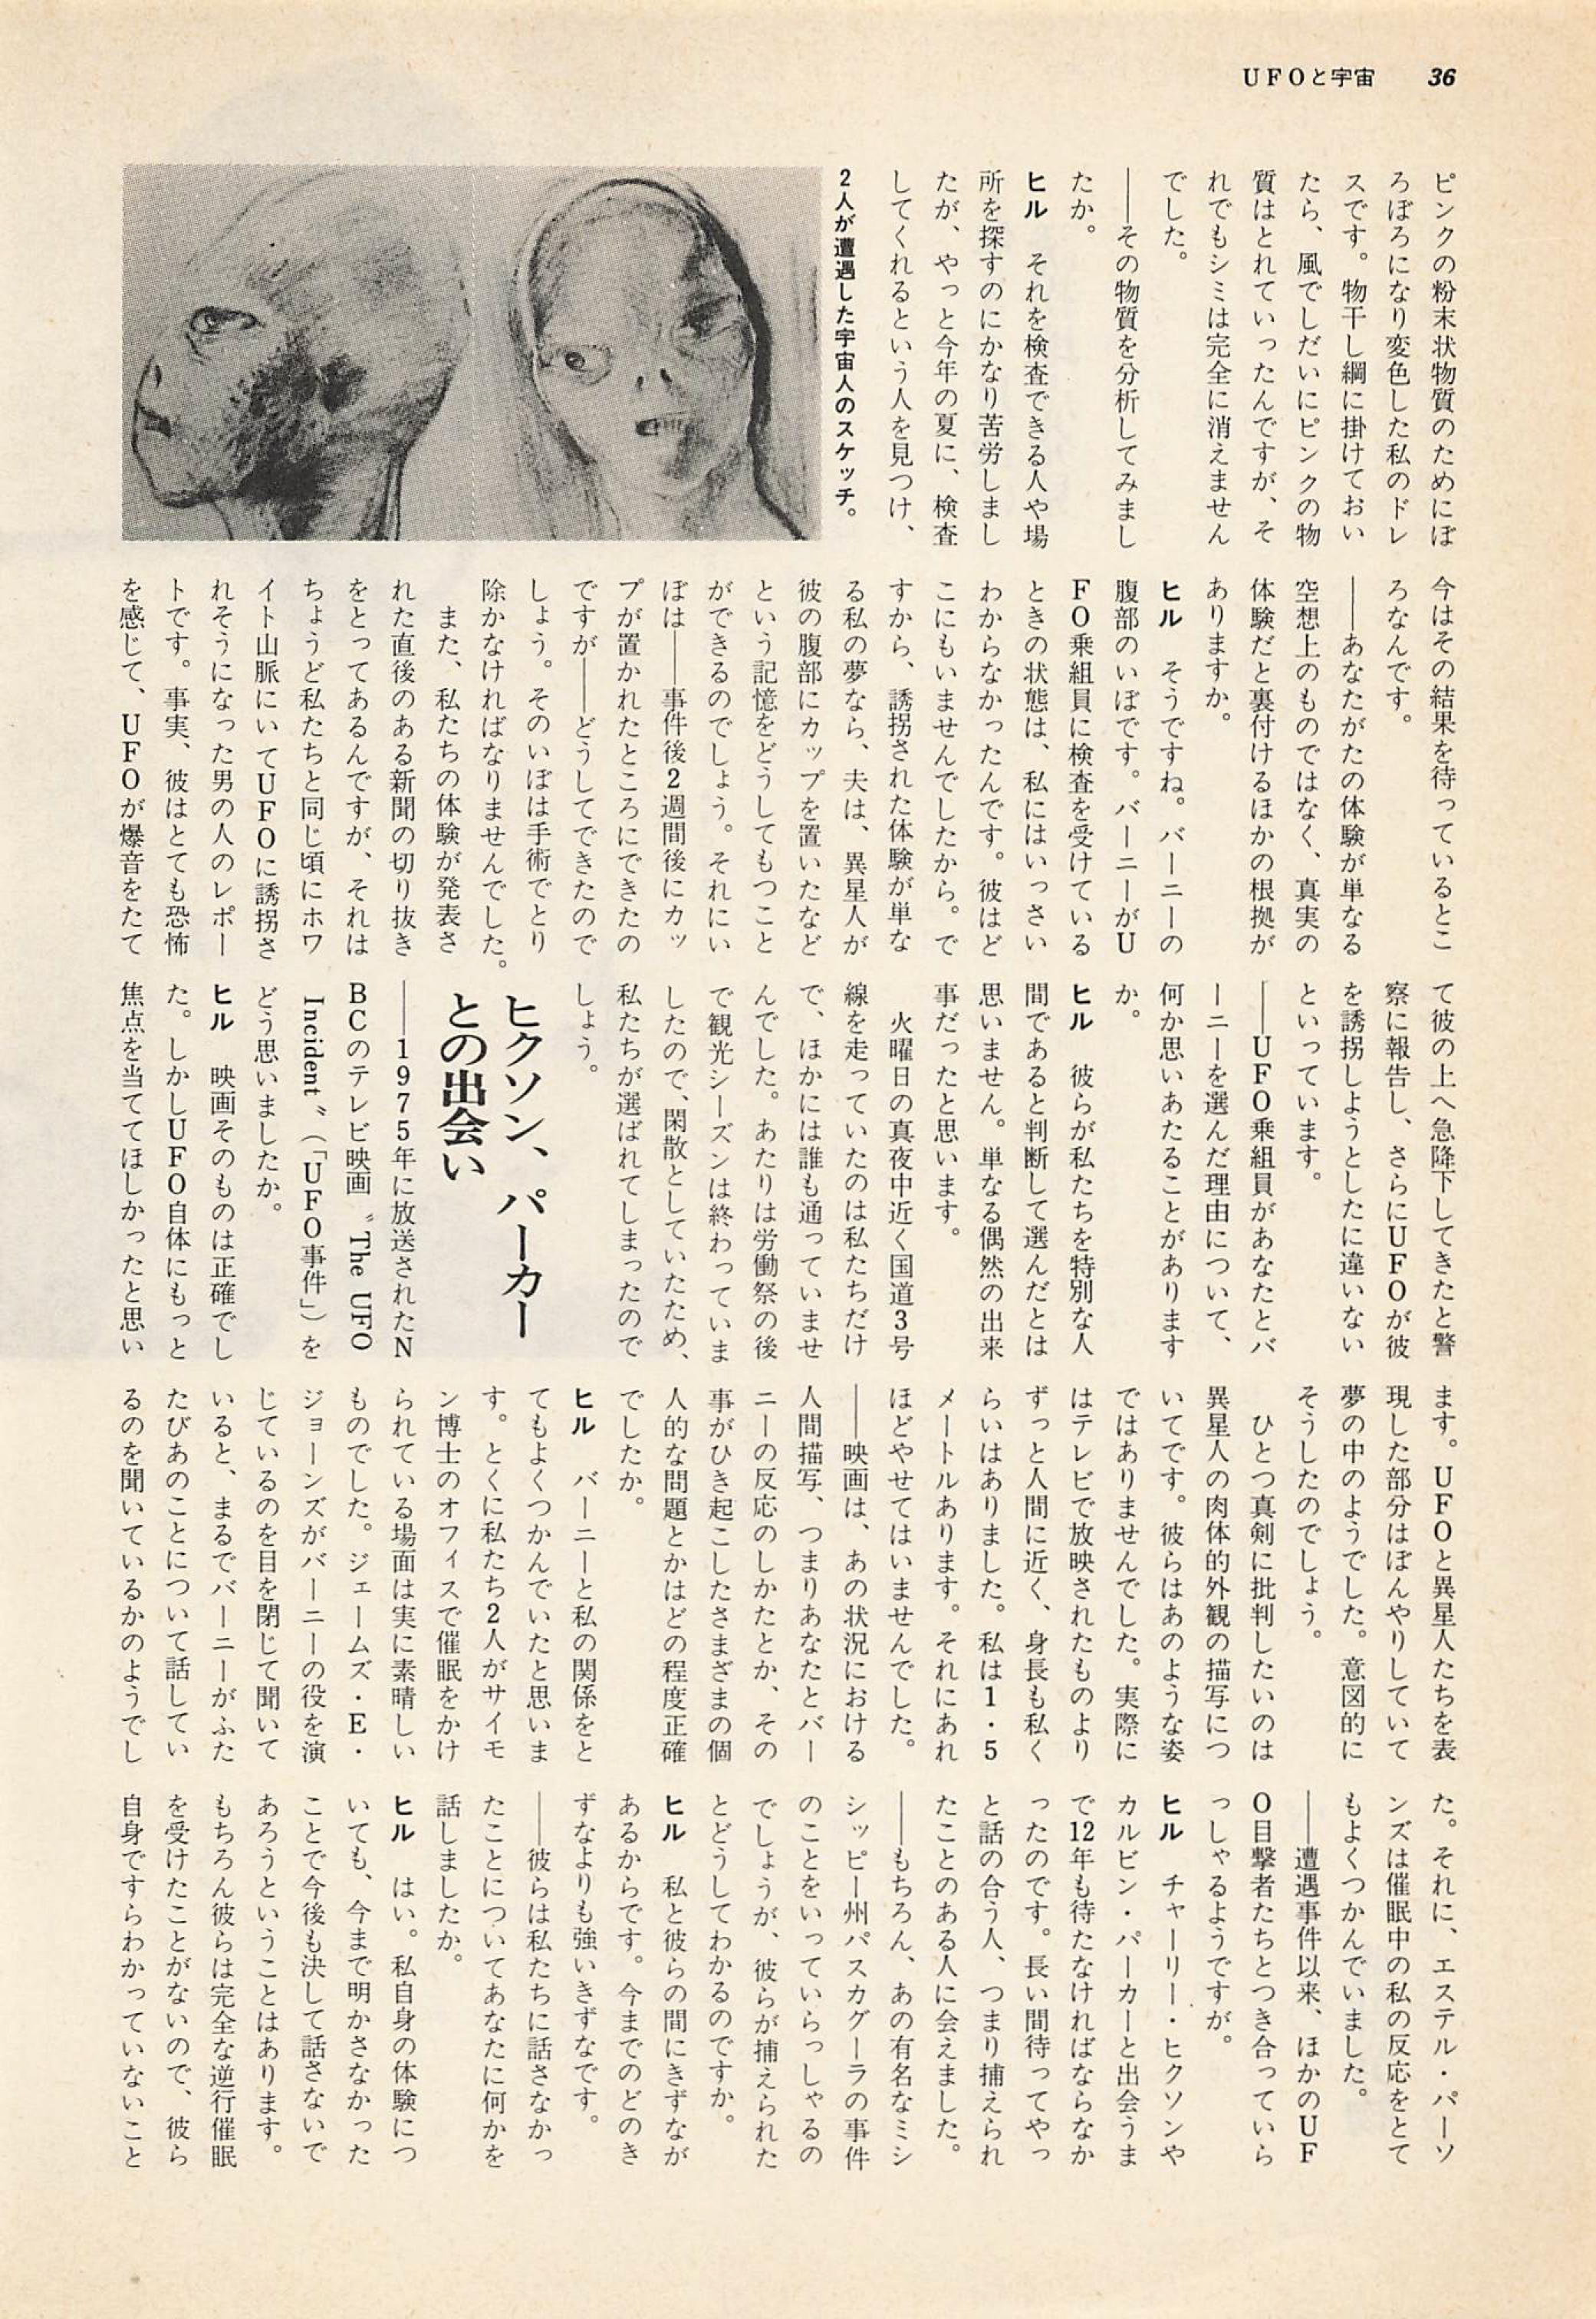 UFOと宇宙　36
ピンクの粉末状物質のためにぼ
ろぼろになり変色した私のドレ
スです。物干し綱に掛けておい
たら、風でしだいにピンクの物
質はとれていったんですが、そ
れでもシミは完全に消えません
でした。
――その物質を分析してみまし
たか。
ヒル　それを検査できる人や場
所を探すのにかなり苦労しまし
たが、やっと今年の夏に、検査
してくれるという人を見つけ、
2人が遭遇した宇宙人のスケッチ。
今はその結果を待っているとこ
ろなんです。
――あなたがたの体験が単なる
空想上のものではなく、真実の
体験だと裏付けるほかの根拠が
ありますか。
ヒル　そうですね。バーニーの
腹部のいぼです。バーニーがU
FO乗組員に検査を受けている
ときの状態は、私にはいっさい
わからなかったんです。彼はど
こにもいませんでしたから。で
すから、誘拐された体験が単な
る私の夢なら、夫は、異星人が
彼の腹部にカップを置いたなど
という記憶をどうしてもつこと
ができるのでしょう。それにい
ぼは――事件後2週間後にカッ
プが置かれたところにできたの
ですが――どうしてできたので
しょう。そのいぼは手術でとり
除かなければなりませんでした。
　また、私たちの体験が発表さ
れた直後のある新聞の切り抜き
をとってあるんですが、それは
ちょうど私たちと同じ頃にホワ
イト山脈にいてUFOに誘拐さ
れそうになった男の人のレポー
トです。事実、彼はとても恐怖
を感じて、UFOが爆音をたて
て彼の上へ急降下してきたと警
察に報告し、さらにUFOが彼
を誘拐しようとしたに違いない
といっています。
――UFO乗組員があなたとバ
ーニーを選んだ理由について、
何か思いあたることがあります
か。
ヒル　彼らが私たちを特別な人
間であると判断して選んだとは
思いません。単なる偶然の出来
事だったと思います。
　火曜日の真夜中近く国道3号
線を走っていたのは私たちだけ
で、ほかには誰も通っていませ
んでした。あたりは労働祭の後
で観光シーズンは終わっていま
したので、閑散としていたため、
私たちが選ばれてしまったので
しょう。
ヒクソン、パーカー
との出会い
――1975年に放送されたN
BCのテレビ映画〝The UFO
Incident〟（「UFO事件」）を
どう思いましたか。
ヒル　映画そのものは正確でし
た。しかしUFO自体にもっと
焦点を当ててほしかったと思い
ます。UFOと異星人たちを表
現した部分はぼんやりしていて
夢の中のようでした。意図的に
そうしたのでしょう。
　ひとつ真剣に批判したいのは
異星人の肉体的外観の描写につ
いてです。彼らはあのような姿
ではありませんでした。実際に
はテレビで放映されたものより
ずっと人間に近く、身長も私く
らいはありました。私は1・5
メートルあります。それにあれ
ほどやせてはいませんでした。
――映画は、あの状況における
人間描写、つまりあなたとバー
ニーの反応のしかたとか、その
事がひき起こしたさまざまの個
人的な問題とかはどの程度正確
でしたか。
ヒル　バーニーと私の関係をと
てもよくつかんでいたと思いま
す。とくに私たち2人がサイモ
ン博士のオフィスで催眠をかけ
られている場面は実に素晴しい
ものでした。ジェームズ・E・
ジョーンズがバーニーの役を演
じているのを目を閉じて聞いて
いると、まるでバーニーがふた
たびあのことについて話してい
るのを聞いているかのようでし
た。それに、エステル・パーソ
ンズは催眠中の私の反応をとて
もよくつかんでいました。
――遭遇事件以来、ほかのUF
O目撃者たちとつき合っていら
っしゃるようですが。
ヒル　チャーリー・ヒクソンや
カルビン・パーカーと出会うま
で12年も待たなければならなか
ったのです。長い間待ってやっ
と話の合う人、つまり捕えられ
たことのある人に会えました。
――もちろん、あの有名なミシ
シッピー州パスカグーラの事件
のことをいっていらっしゃるの
でしょうが、彼らが捕えられた
とどうしてわかるのですか。
ヒル　私と彼らの間にきずなが
あるからです。今までのどのき
ずなよりも強いきずなです。
――彼らは私たちに話さなかっ
たことについてあなたに何かを
話しましたか。
ヒル　はい。私自身の体験につ
いても、今まで明かさなかった
ことで今後も決して話さないで
あろうということはあります。
もちろん彼らは完全な逆行催眠
を受けたことがないので、彼ら
自身ですらわかっていないこと